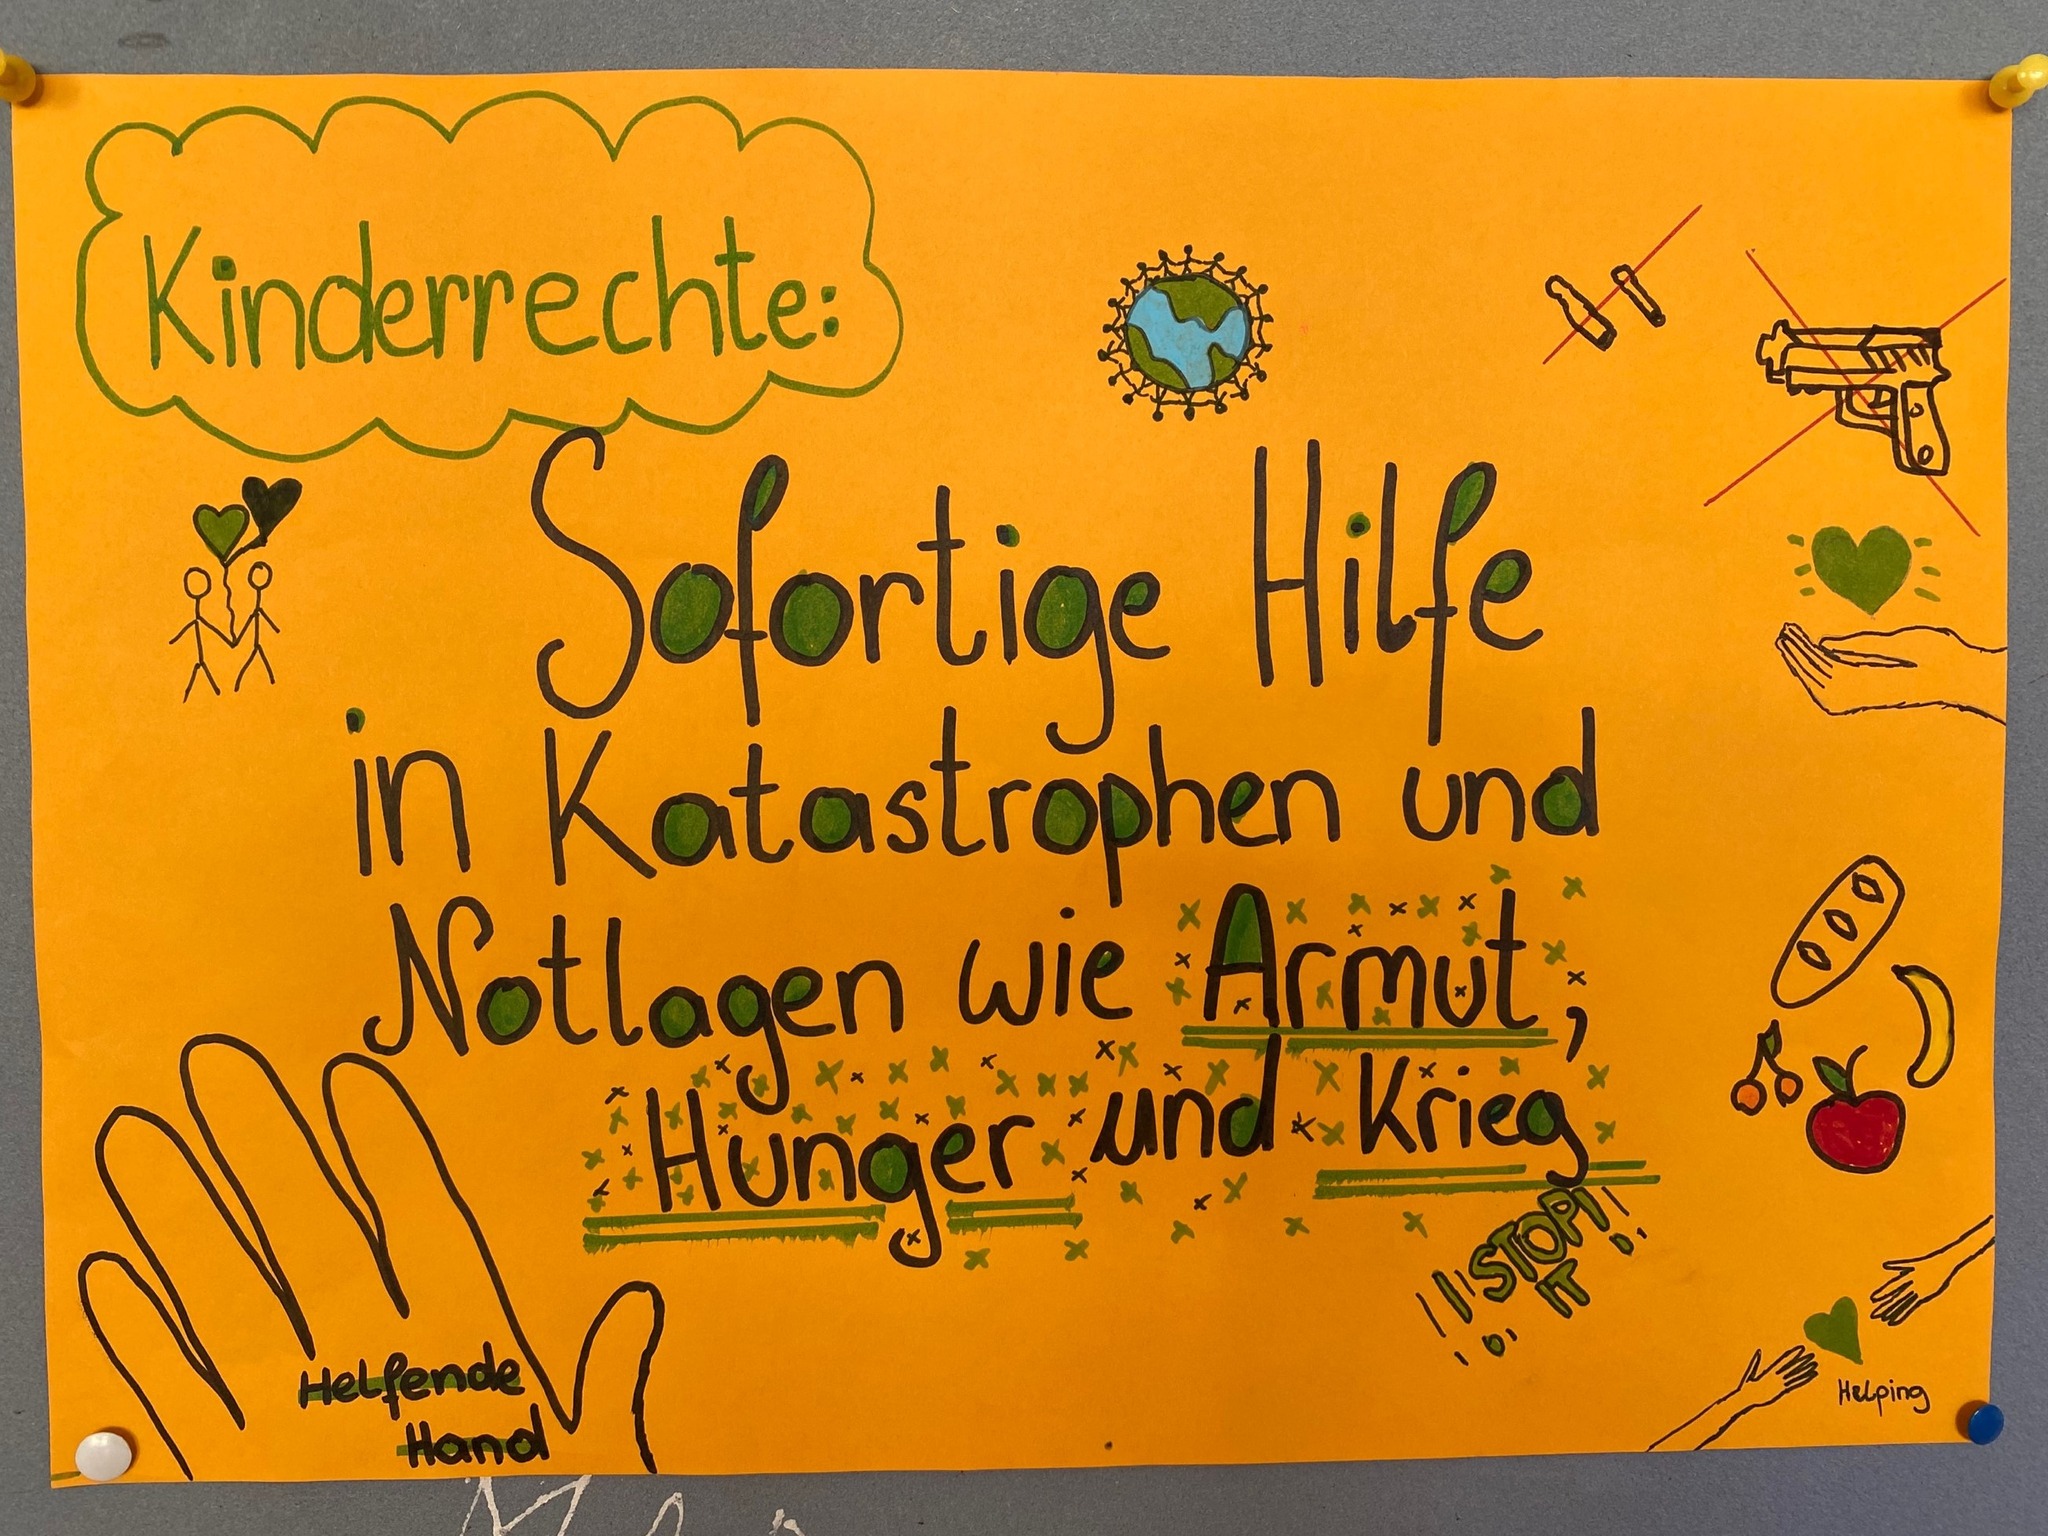 Kinderrechte:
Sofortige Hilfe
in Katastrophen und
Notlagen wie Armut,
Hunger und Krieg
!!!STOP!!!
IT
Helfende
Hand
Helping